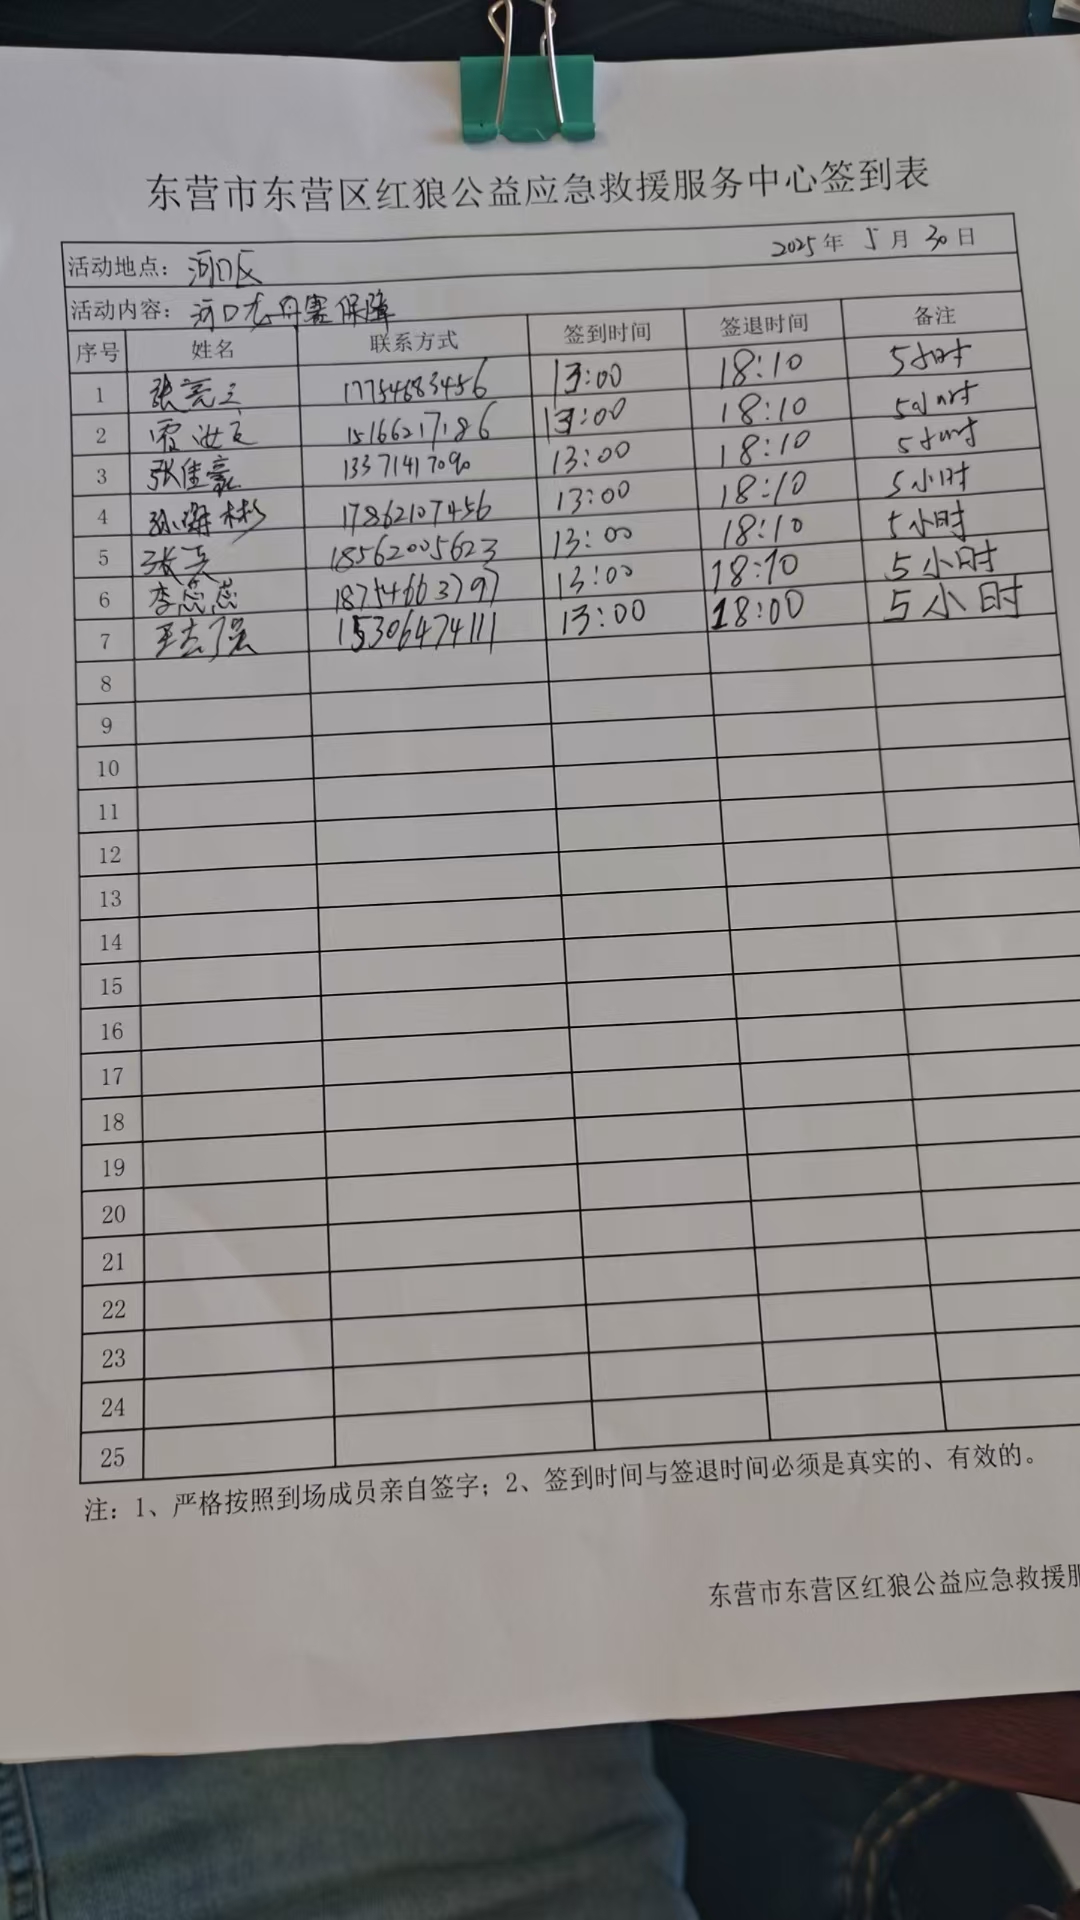 东营市东营区红狼公益应急救援服务中心签到表
活动地点：河口区 2025年 5月 30日
活动内容：河口龙舟赛保障
序号 姓名 联系方式 签到时间 签退时间 备注
1 张亮 17754683456 13:00 18:10 5小时
2 15166217186 13:00 18:10 5小时
3 张佳豪 13371417090 13:00 18:10 5小时
4 孙 彬 17862107456 13:00 18:10 5小时
5 张 18562005623 13:00 18:10 5小时
6 李蕊蕊 18754663797 13:00 18:10 5小时
7 王志强 15306474111 13:00 18:00 5小时
8
9
10
11
12
13
14
15
16
17
18
19
20
21
22
23
24
25
注：1、严格按照到场成员亲自签字；2、签到时间与签退时间必须是真实的、有效的。
东营市东营区红狼公益应急救援服